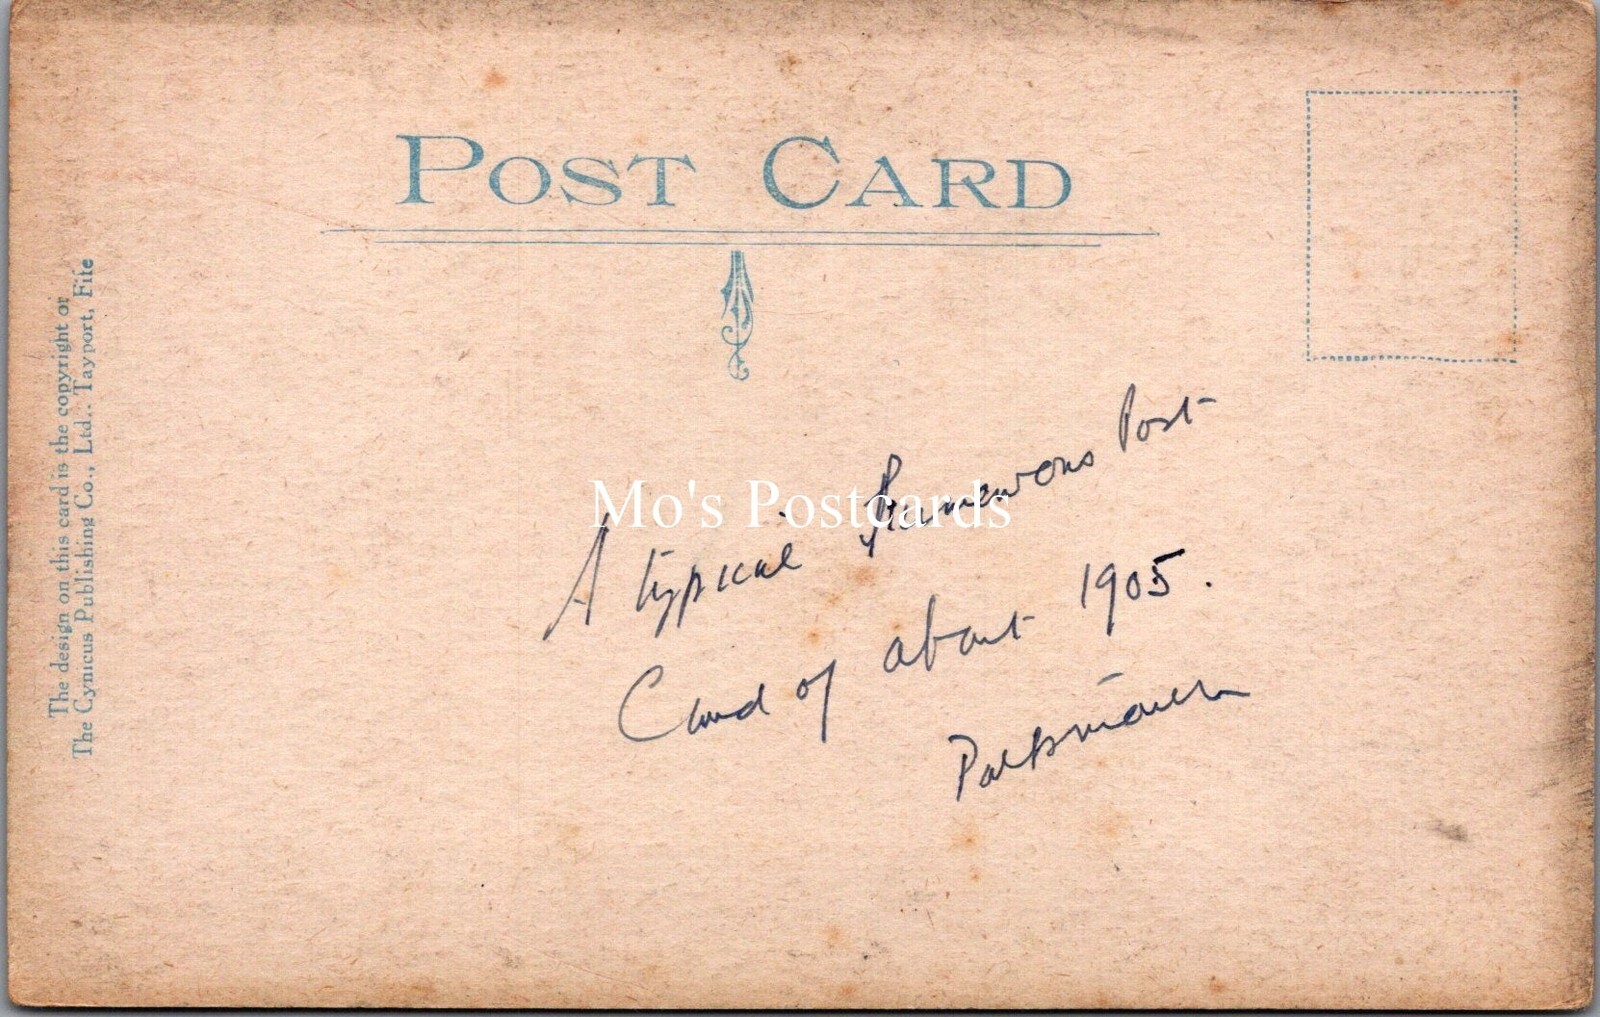 POST CARD
The design on this card is the copyright of
The Cynicus Publishing Co., Ltd.. Tayport, Fife
Mo's Postcards
A typical Humorous Post
Card of about 1905.